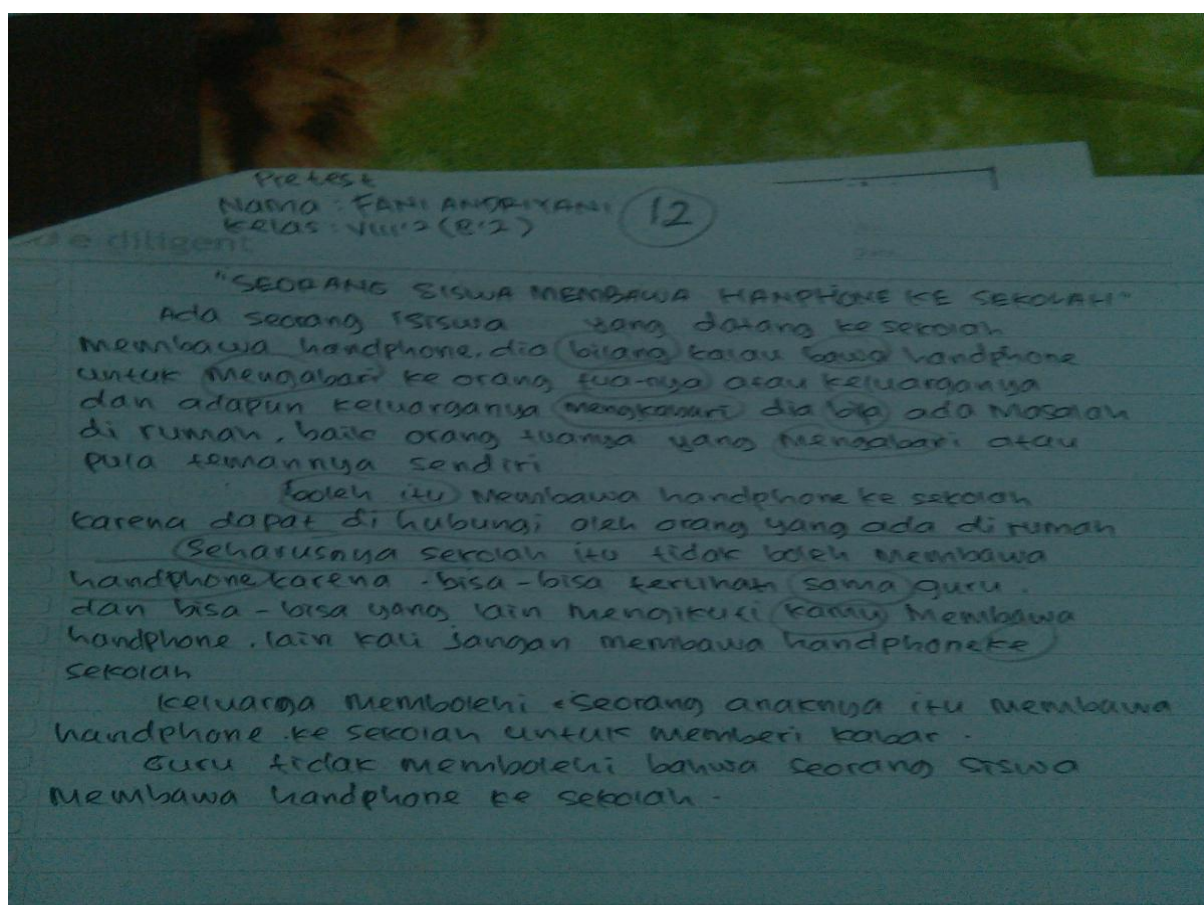 Pretest
Nama : FANI ANDRIYANI
Kelas : VIII.2 (8.2)
12
e diligent
"SEORANG SISWA MEMBAWA HANPHONE KE SEKOLAH"
Ada seorang siswa yang datang ke sekolah
membawa handphone. dia bilang kalau bawa handphone
untuk mengabari ke orang tua-nya atau keluarganya
dan adapun keluarganya mengkabari dia bip ada masalah
di rumah, baik orang tuanya yang mengabari atau
pula temannya sendiri
boleh itu membawa handphone ke sekolah
karena dapat di hubungi oleh orang yang ada di rumah
Seharusnya sekolah itu tidak boleh membawa
handphone karena bisa-bisa terlihat sama guru.
dan bisa-bisa yang lain mengikuti kamu membawa
handphone. lain kali jangan membawa handphoneke
sekolah
keluarga membolehi seorang anaknya itu membawa
handphone ke sekolah untuk memberi kabar.
Guru tidak membolehi bahwa seorang siswa
membawa handphone ke sekolah.